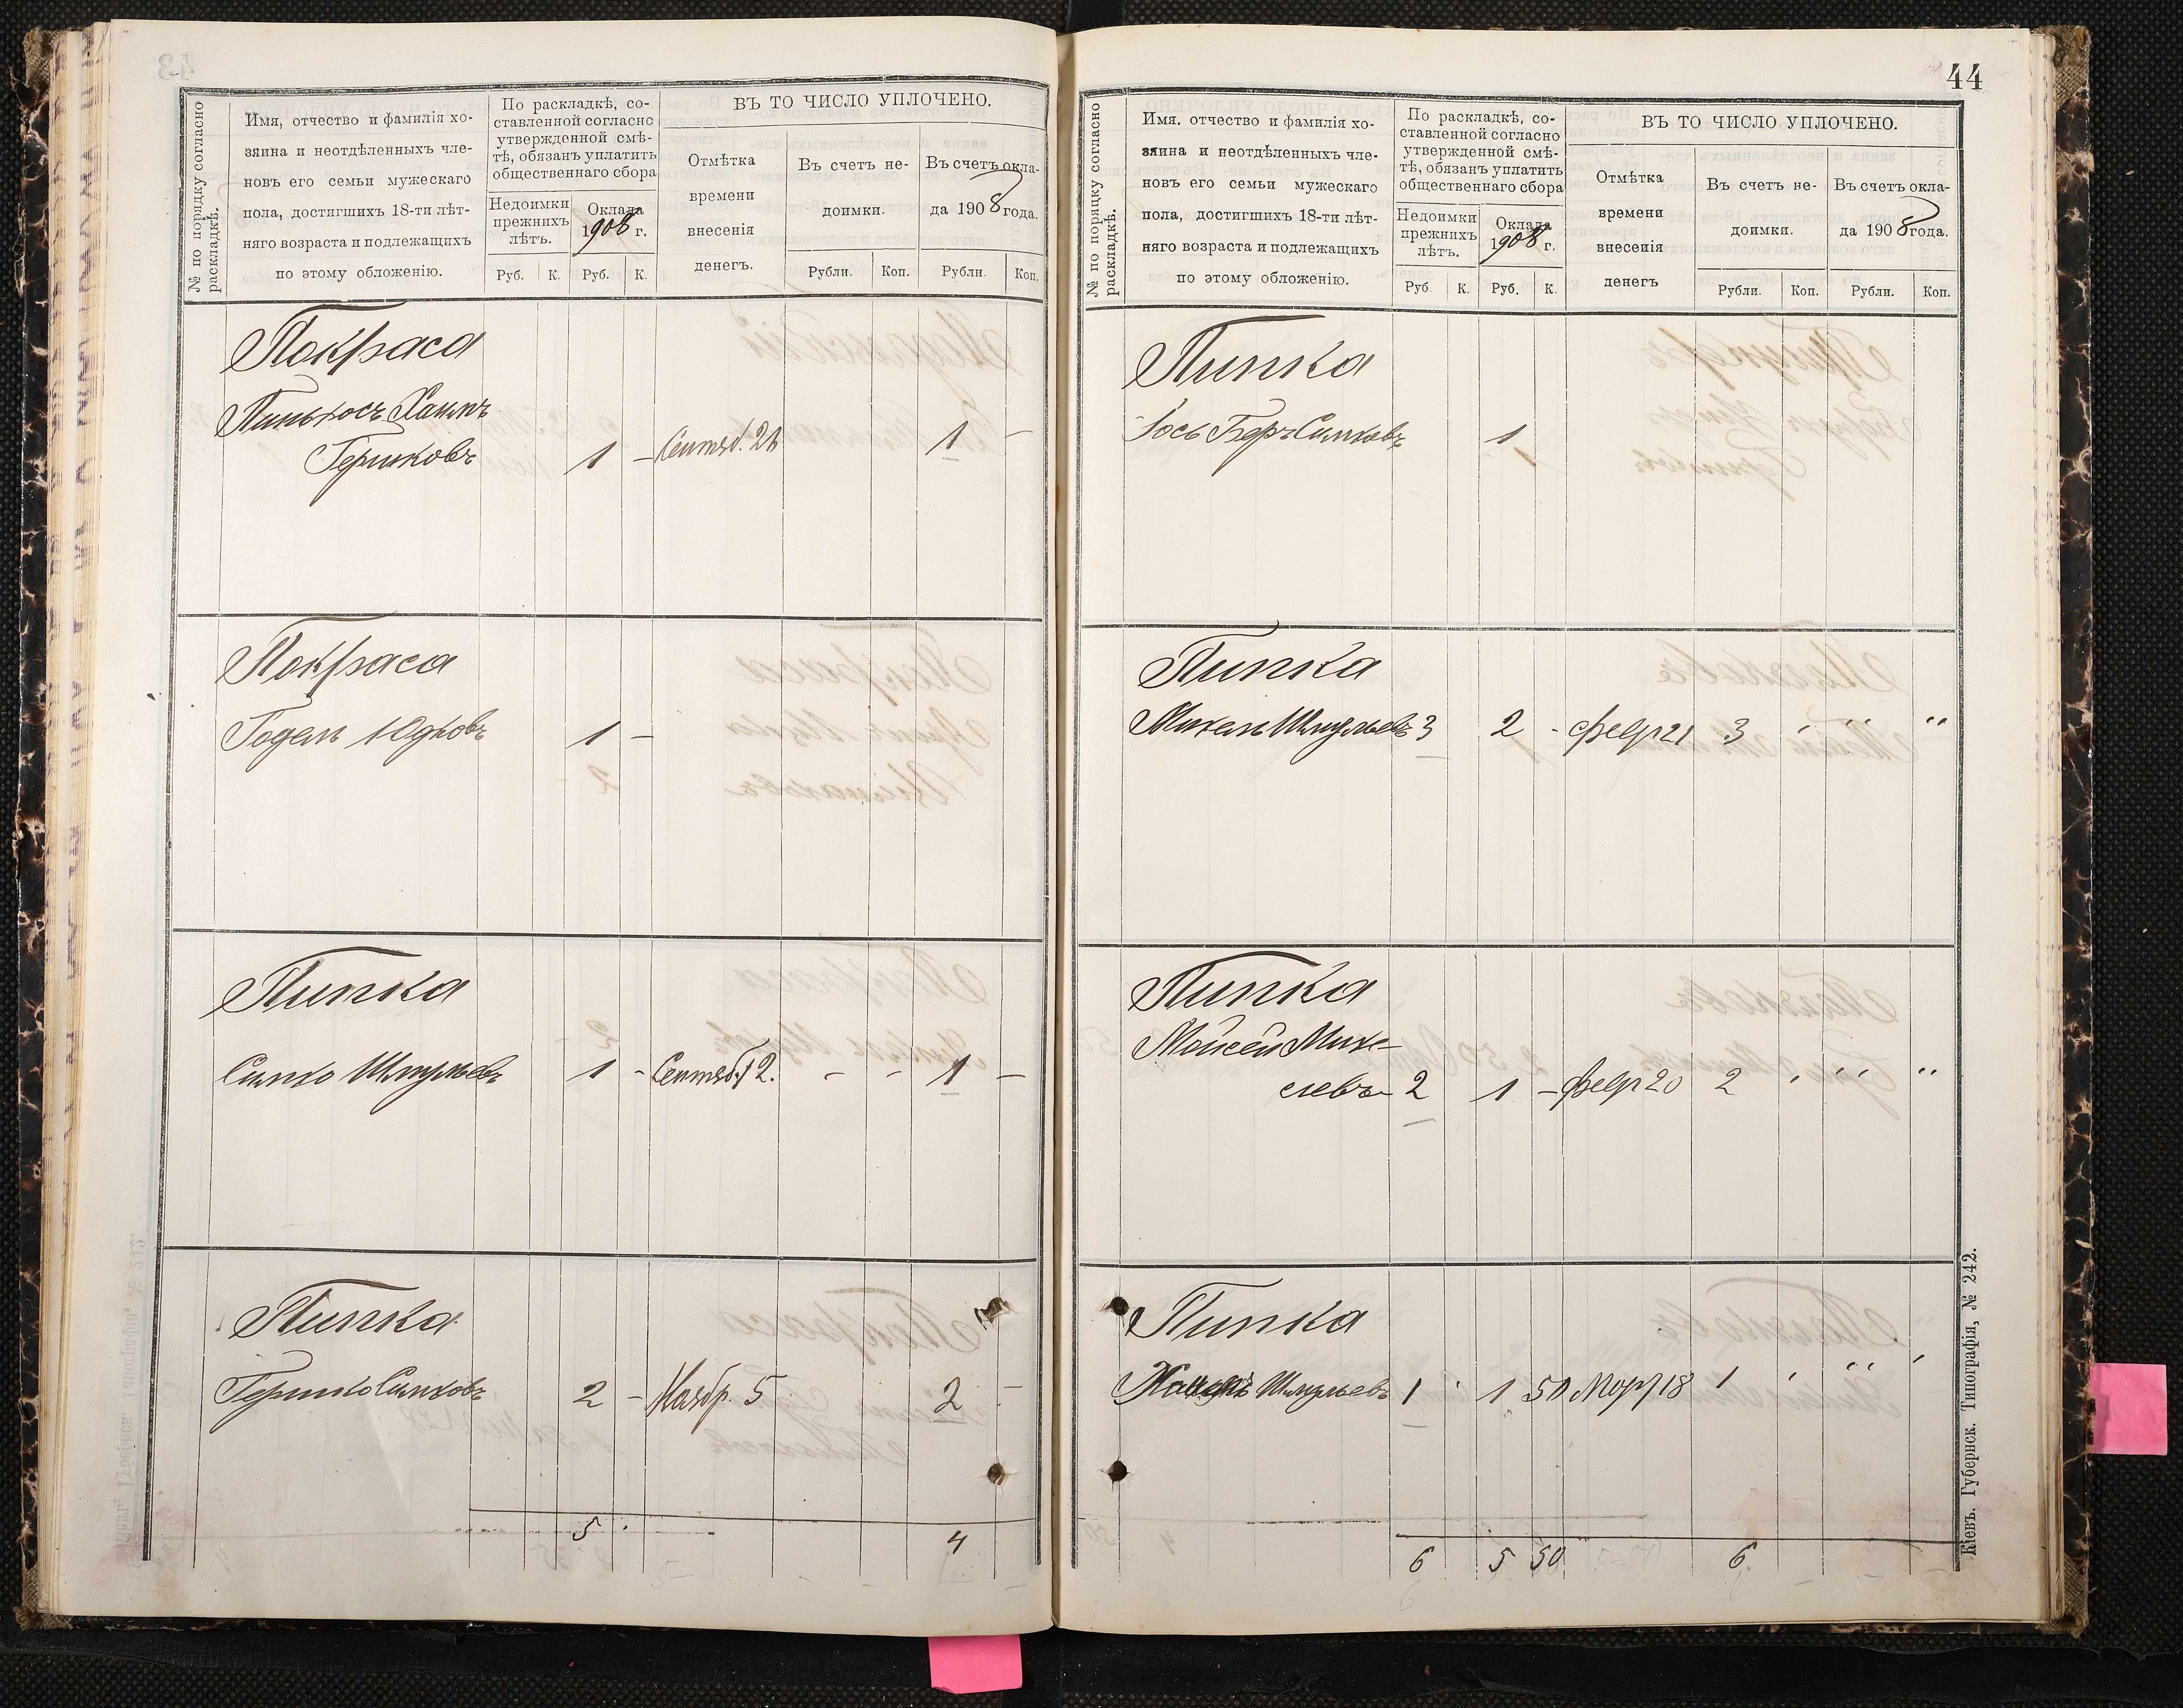 № по порядку согласно
раскладкѣ.
Имя, отчество и фамилія хо-
зяина и неотдѣленныхъ чле-
новъ его семьи мужескаго
пола, достигшихъ 18-ти лѣт-
няго возраста и подлежащихъ
по этому обложенію.
По раскладкѣ, со-
ставленной согласно
утвержденной смѣ-
тѣ, обязанъ уплатить
общественнаго сбора
Недоимки
прежнихъ
лѣтъ.
Оклада
1908 г.
Руб. К. Руб. К.
ВЪ ТО ЧИСЛО УПЛОЧЕНО.
Отмѣтка
времени
внесенія
денегъ.
Въ счетъ не-
доимки.
Рубли. Коп.
Въ счетъ окла-
да 1908 года.
Рубли. Коп.
Покраса
Пинькосъ Хаимъ
Гершковъ 1 - Сентяб. 21 1 -
Покраса
Годель Юдковъ 1 -
Пипка
Симхо Шмульевъ 1 - Сентяб. 12. - - 1 -
Пипка
Гершко Симховъ 2 - Ноябр. 5 2 -
5 4
44
№ по порядку согласно
раскладкѣ.
Имя. отчество и фамилія хо-
зяина и неотдѣленныхъ чле-
новъ его семьи мужескаго
пола, достигшихъ 18-ти лѣт-
няго возраста и подлежащихъ
по этому обложенію.
По раскладкѣ, со-
ставленной согласно
утвержденной смѣ-
тѣ, обязанъ уплатить
общественнаго сбора
Недоимки
прежнихъ
лѣтъ.
Оклада
1908 г.
Руб К. Руб. К.
ВЪ ТО ЧИСЛО УПЛОЧЕНО.
Отмѣтка
времени
внесенія
денегъ
Въ счетъ не-
доимки.
Рубли. Коп.
Въ счетъ окла-
да 1908 года.
Рубли. Коп.
Пипка
Іось Беръ Симховъ 1
1
Пипка
Михель Шмульевъ 3 2 - февр 21 3 " "
Пипка
Мойсей Михе-
левъ 2 1 - февр 20 2 " "
Пипка
Шмульевъ 1 1 50 Март 18 1 "
6 5 50 6
Кіевъ. Губернск. Типографія, № 242.